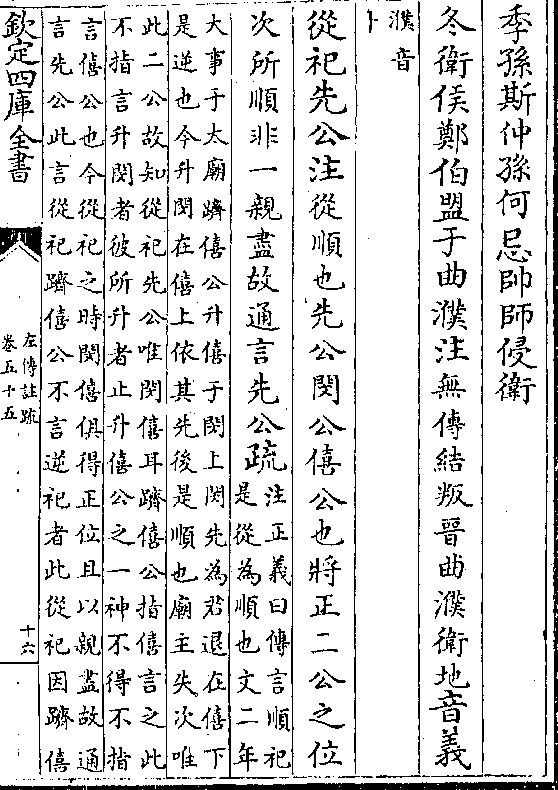 季孫斯仲孫何忌帥師侵衛
冬衛侯鄭伯盟于曲濮注無傳結叛晉曲濮衛地音義
濮音
卜
從祀先公注從順也先公閔公僖公也將正二公之位
次所順非一親盡故通言先公疏
注正義曰傳言順祀
是從為順也文二年
大事于太廟躋僖公升僖于閔上閔先為君退在僖下
是逆也今升閔在僖上依其先後是順也廟主失次唯
此二公故知從祀先公唯閔僖耳躋僖公指僖言之此
不指言升閔者彼所升者止升僖公之一神不得不指
言僖公也今從祀之時閔僖俱得正位且以親盡故通
言先公此言從祀躋僖公不言逆祀者此從祀因躋僖
欽定四庫全書
左傳註疏
卷五十五
十六